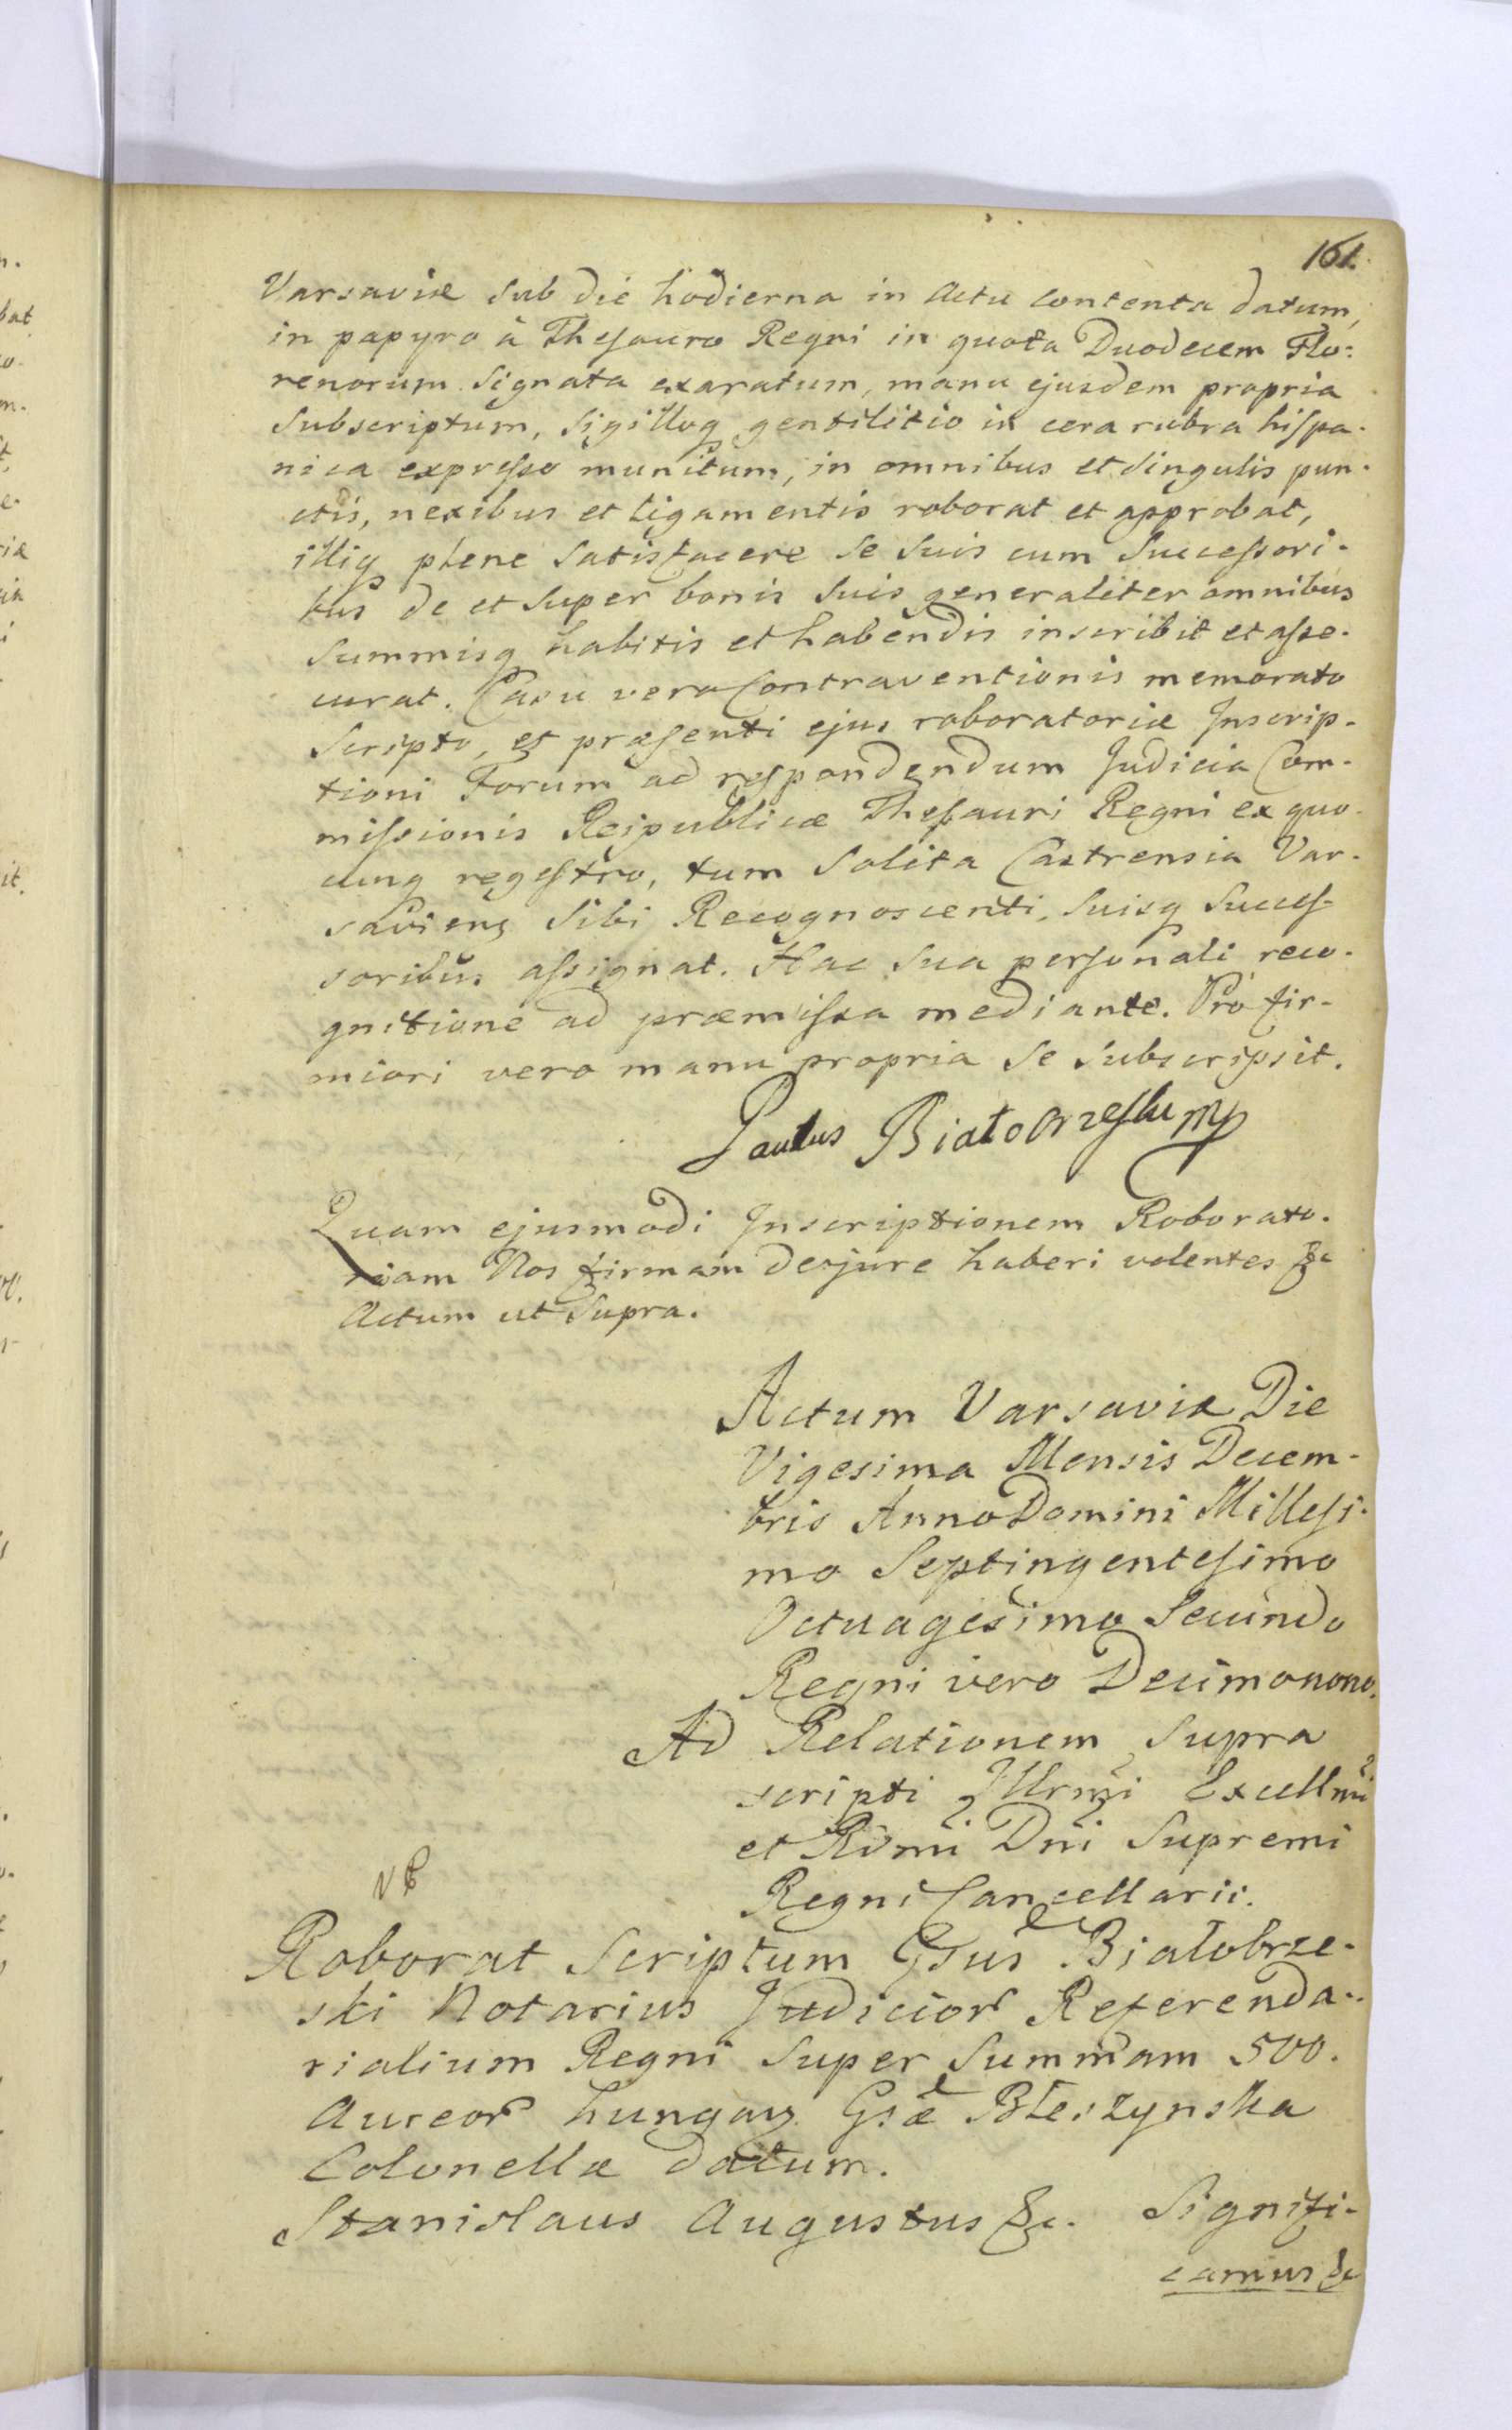 161.
Varsaviæ sub die hodierna in Actu contenta datum,
in papyro à Thesauro Regni in quota Duodecem Flo:
renorum signata exaratum, manu ejusdem propria
subscriptum, sigilloq gentilitio in cera rubra hispa-
nica expresso munitum, in omnibus et singulis pun-
ctis, nexibus et ligamentis roborat et approbat,
illiq plene satisfacere se suis cum Successori-
bus de et super bonis suis generaliter omnibus
summisq habitis et habendis inscribit et asse-
curat. Casu vero Contraventionis memorato
Scripto, et præsenti ejus roboratoriæ Inscrip-
tioni Forum ad respondendum Judicia Com-
missionis Reipublicæ Thesauri Regni ex quo-
cunq regestro, tum solita Castrensia Var-
saviens sibi Recognoscenti, suisq Succes-
soribus assignat. Hac sua personali reco-
gnitione ad præmissa mediante. Pro fir-
miori vero manu propria se subscripsit.
Paulus Białobrzeski mp
Quam ejusmodi Inscriptionem Roborato-
riam Nos firmam de jure haberi volentes &c
Actum ut Supra.
Actum Varsaviæ Die
Vigesima Mensis Decem-
bris Anno Domini Millesi-
mo Septingentesimo
Octuagesimo Secundo
Regni vero Decimonono.
Ad Relationem supra
scripti Illrmi Excellmi
et Rdmi Dni Supremi
Regni Cancellarii.
Roborat Scriptum Gsus Białobrze-
ski Notarius Judicior Referenda-
rialium Regni super Summam 500.
Aureor hungar Gsæ Błeszynska
Colonellæ datum.
Stanislaus Augustus &c. Signifi-
camus &c